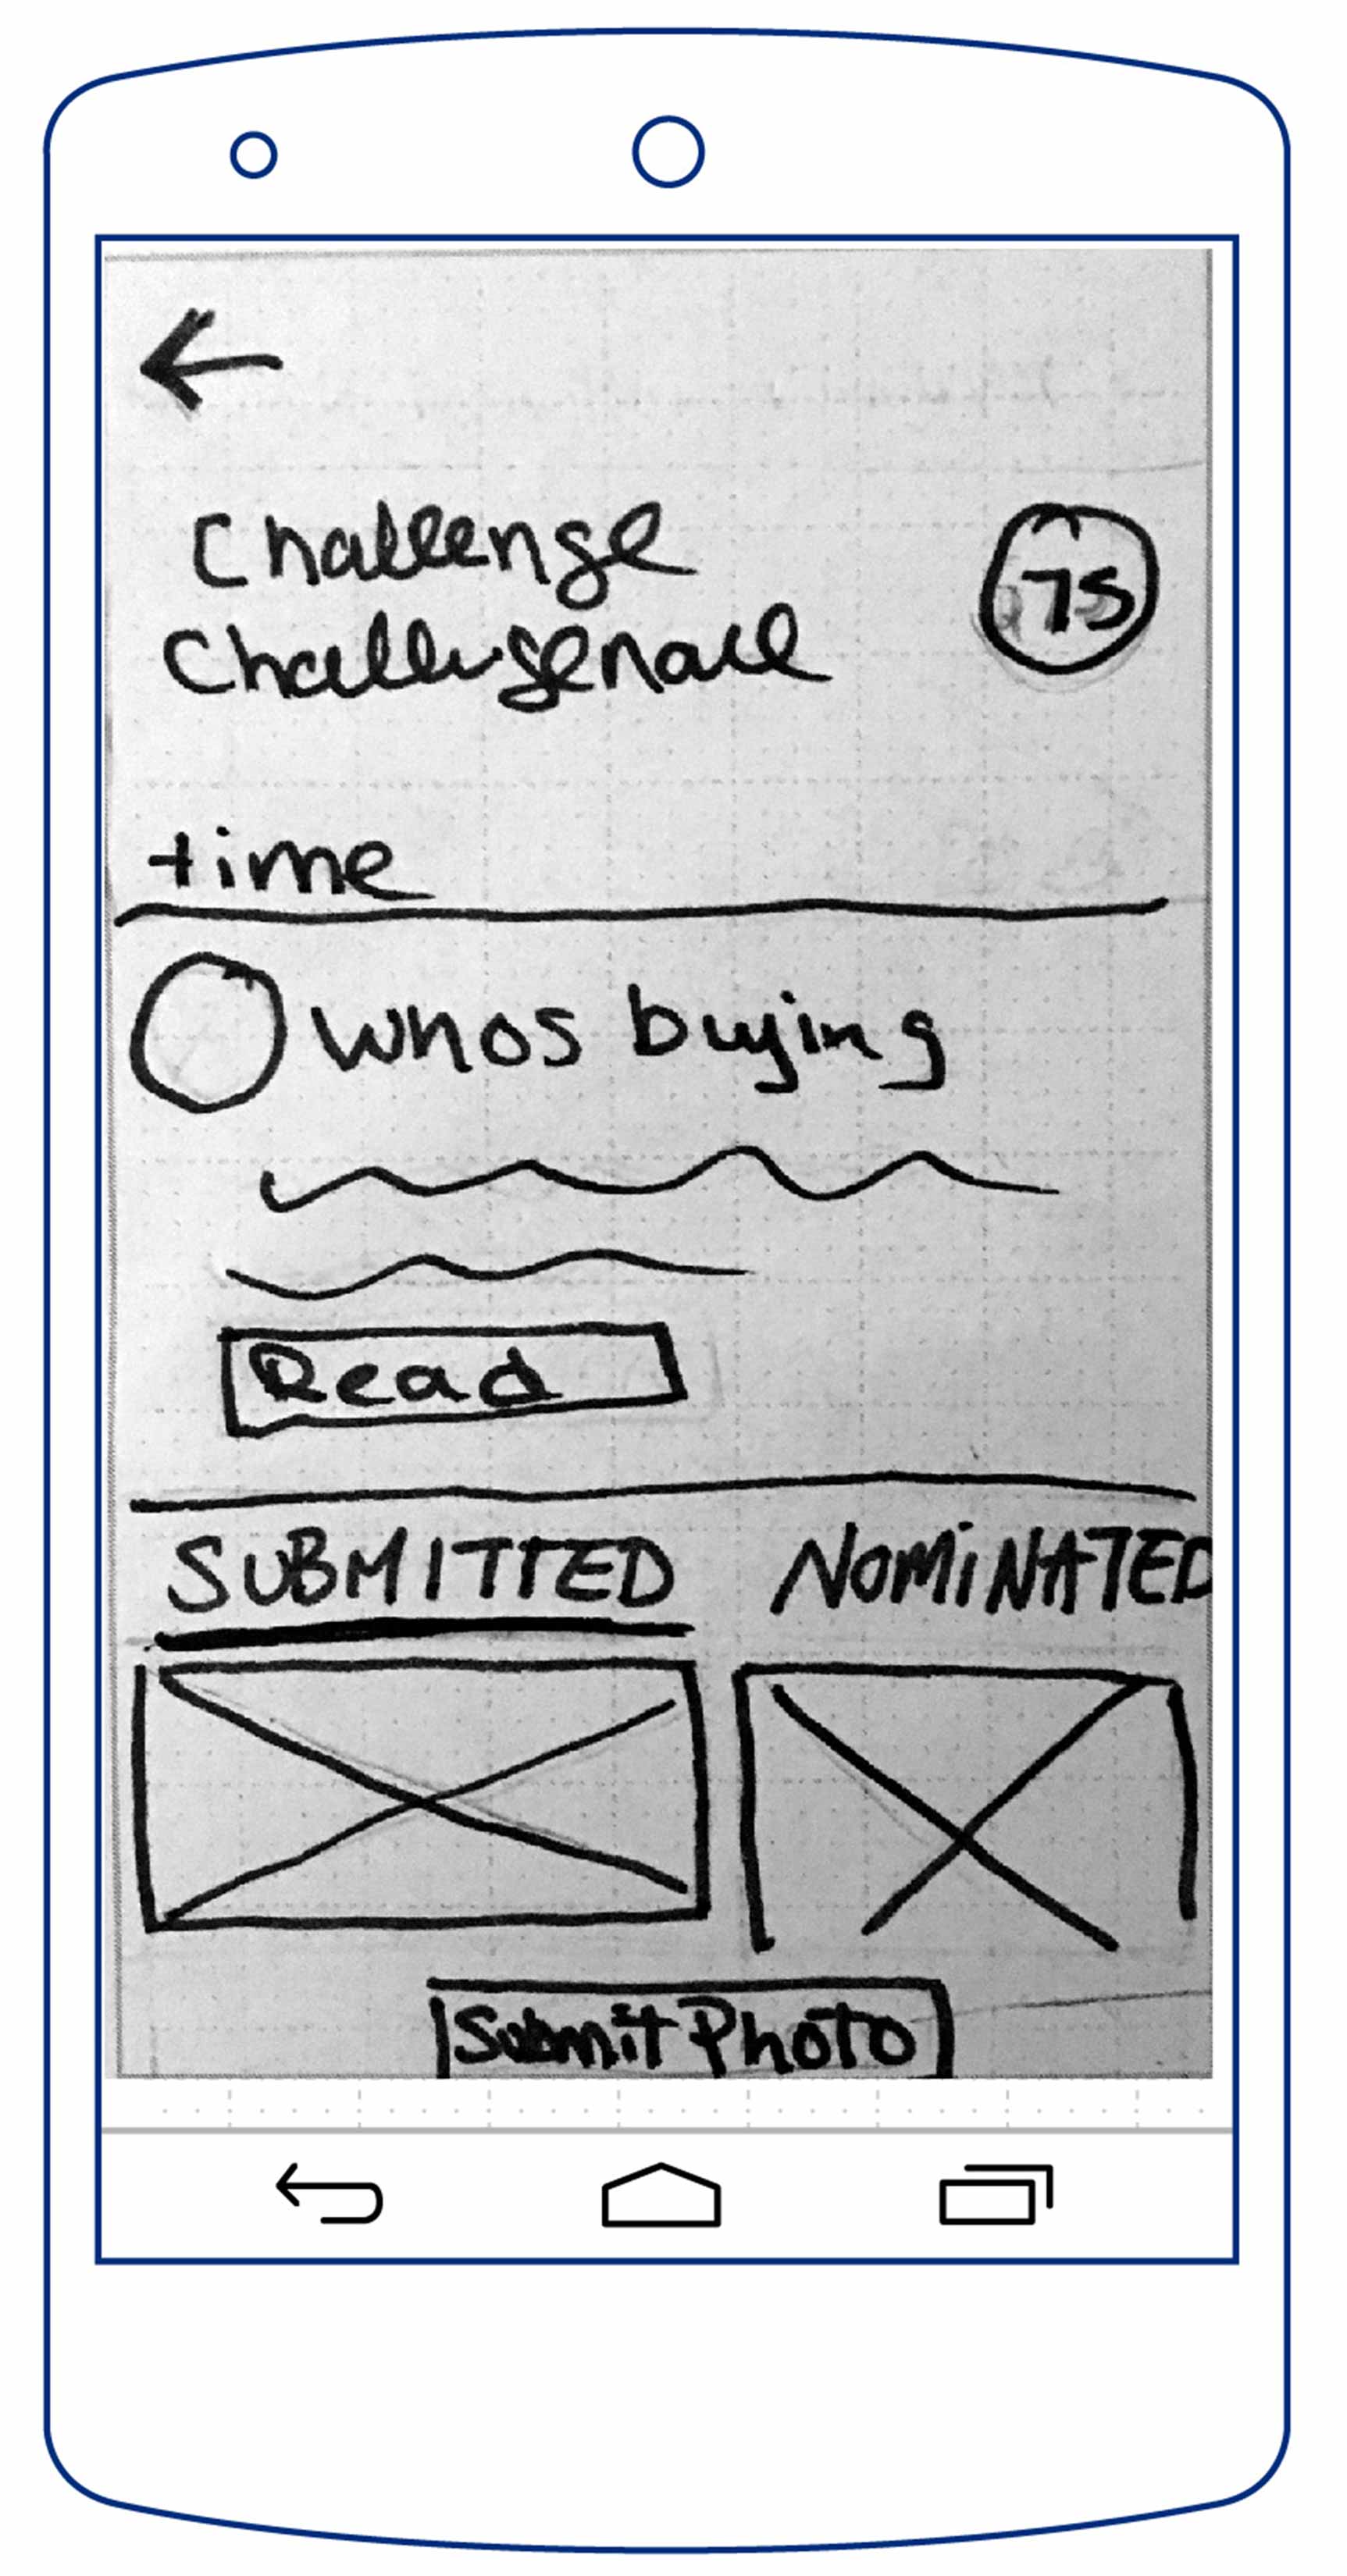 Challenge
75
time
whos buying
Read
SUBMITTED NOMINATED
Submit Photo